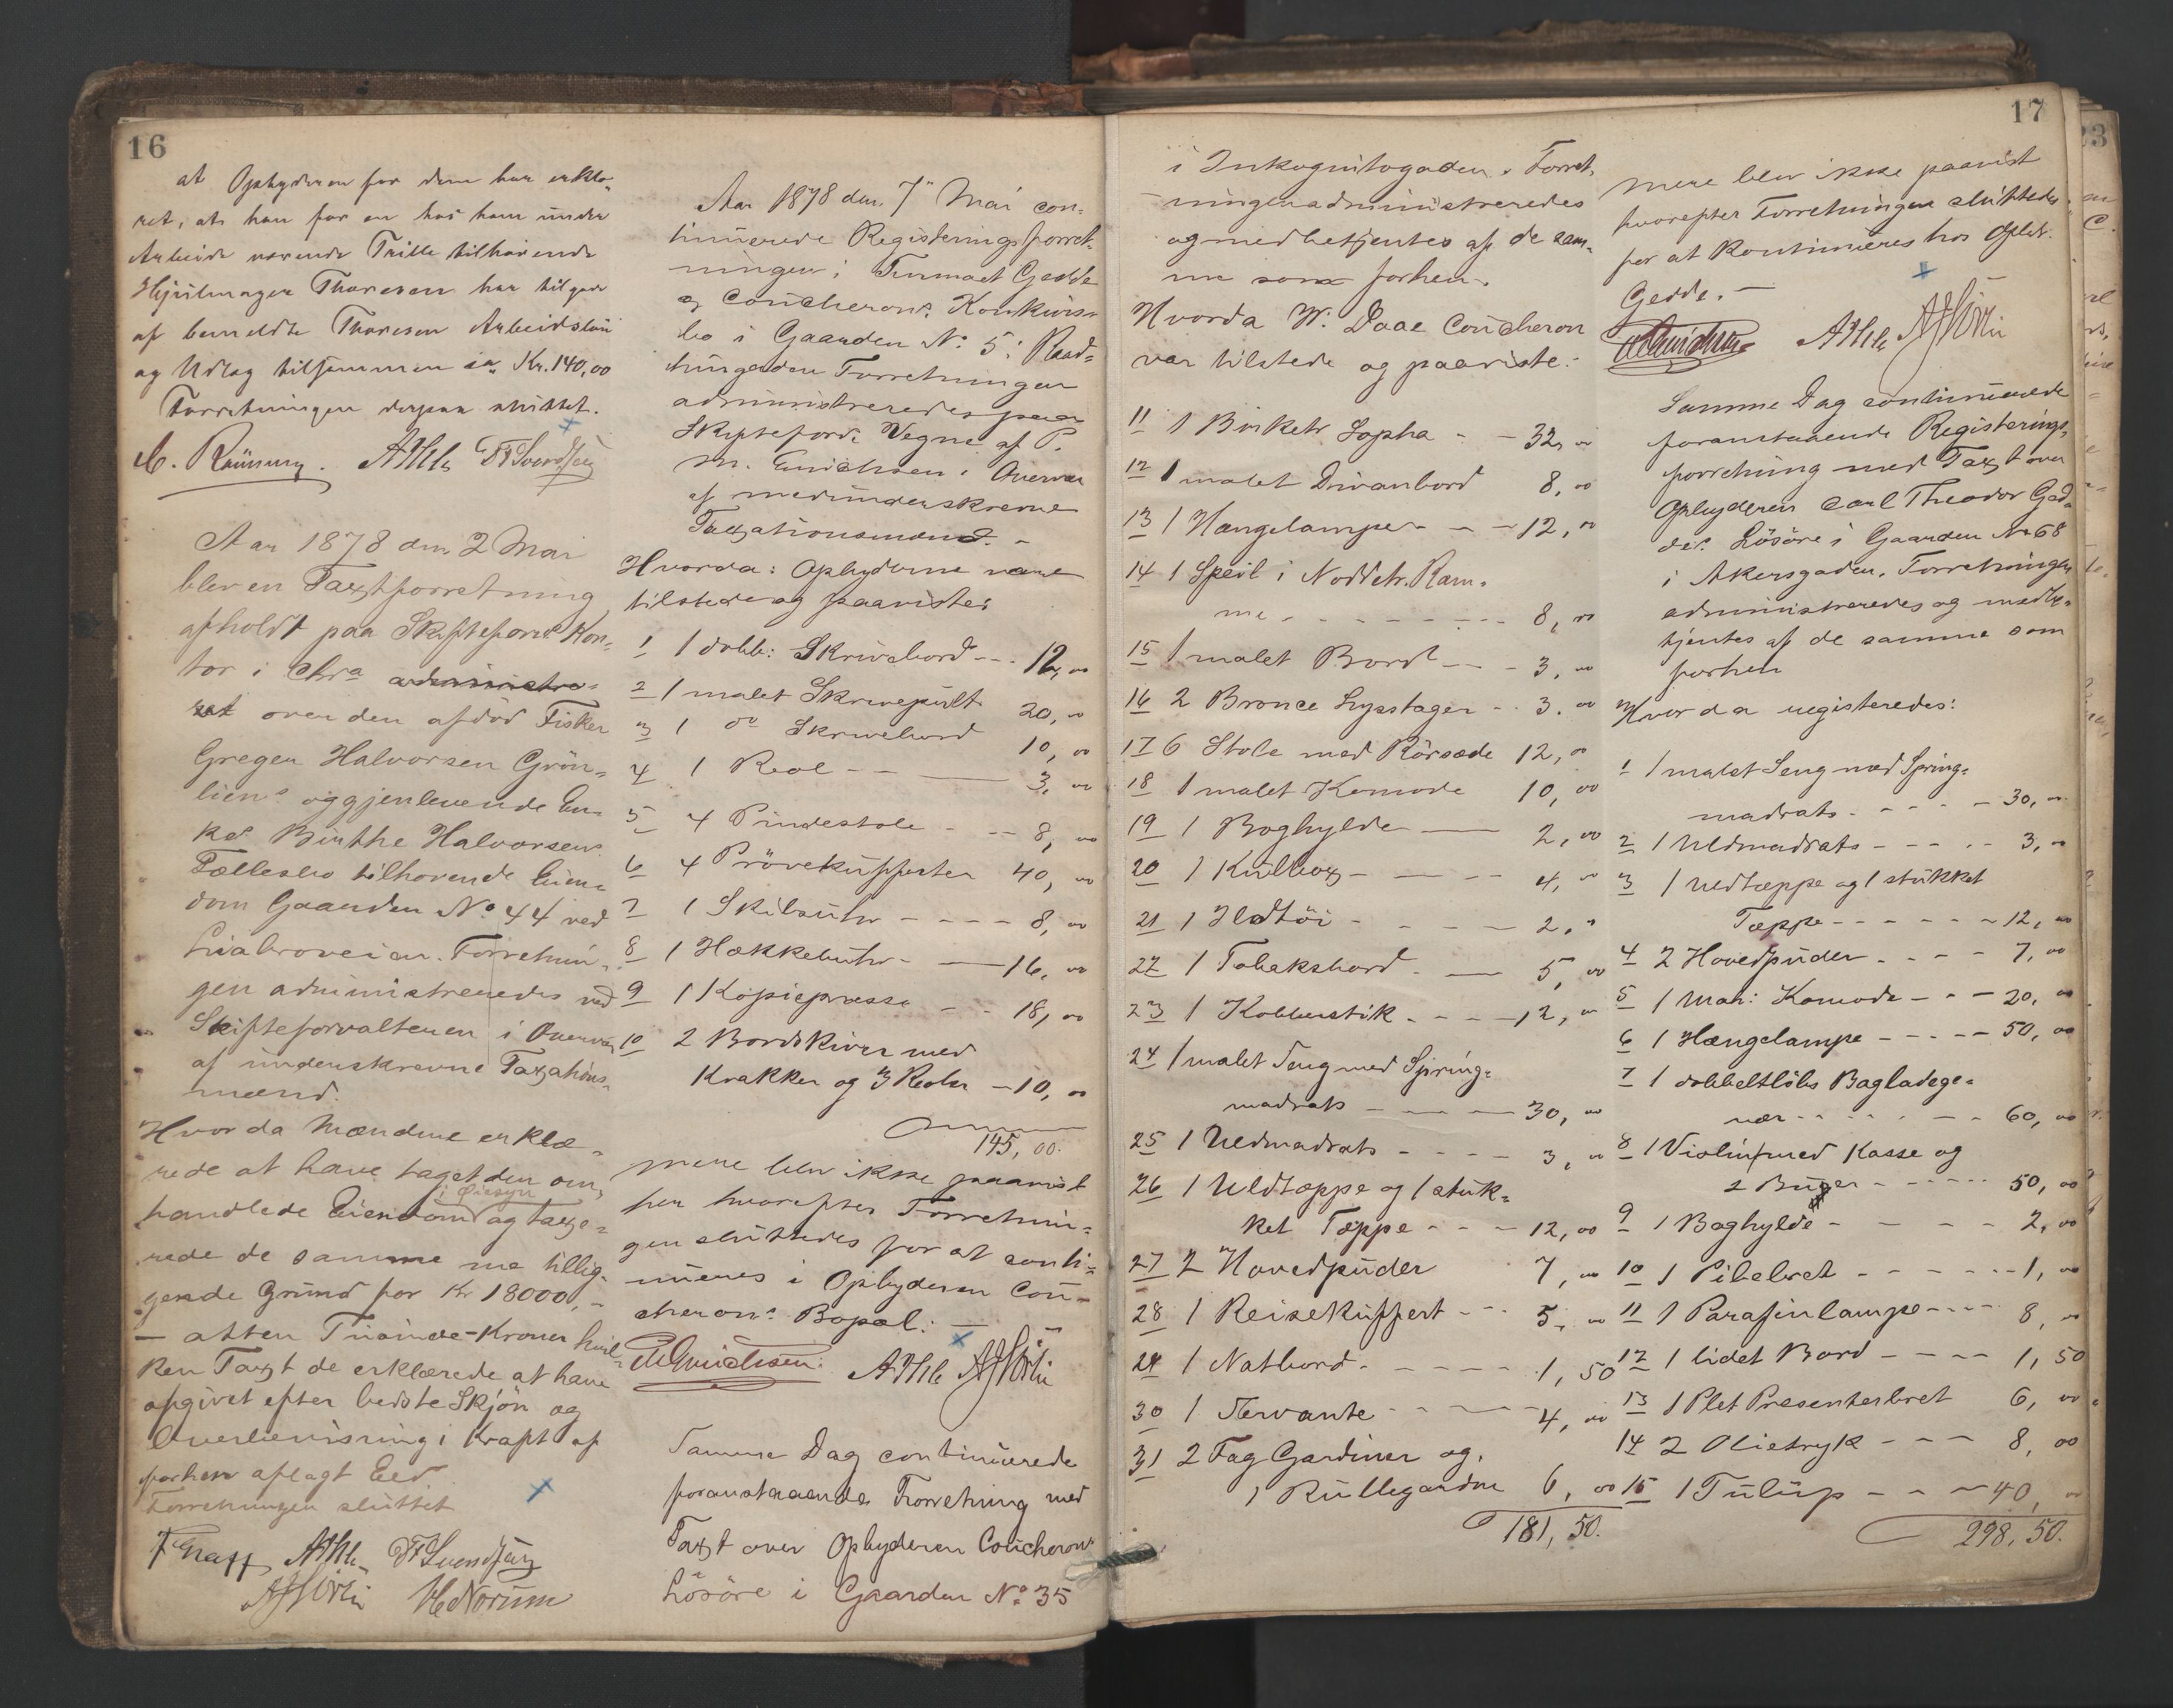 16
at Opbyderen for dem har erklæ-
ret, at han for en hos ham under
Arbeide værende Trille tilhørende
Hjulmager Thoresen har tilgode
af bemeldte Thoresen Arbeidsløn
og Udlæg tilsammen ca. Kr. 140,00
Forretningen derpaa sluttet.
Aar 1878 den 2 Mai
blev en Taxtforretning
afholdt paa Skifteforv. Kon-
tor i Chra administre-
ret over den afdöd Fisker
Gregen Halvorsen Grön-
liens og gjenlevende En-
kes Birthe Halvorsens
Fællesbo tilhorende Eien-
dom Gaarden No. 44 ved
Liabroveien. Forretnin-
gen administreredes ved
Skifteforvalteren i Overvær
af underskrevne Taxations-
mænd.
Hvorda Mændene erklæ-
rede at have taget den om-
i Öiesyn
handlede Eiendom og taxe-
rede de samme me tillig-
gende Grund for Kr 18000,-
— atten Tusinde-Kroner hvil-
ken Taxt de erklærede at have
afgivet efter bedste Skjön og
Overbeviisning i Kraft af
forhen aflagt Eed
Forretningen sluttet
F Graff AThle
H Norum
Aar 1878 den 7de Mai con-
tinuerede Registeringsforret-
ningen i Firmaet Gedde
og Coucherons Konkurs-
bo i Gaarden No. 5 i Raad-
husgaden Forretningen
administreredes paa
Skifteforv. Vegne af P.
M. Erichsen i Overvær
af medunderskrevne
Taxationsmænd. -
Hvorda: Opbyderne vare
tilstede og paaviste:
1 1 dobb: Skrivebord - - - 12,00
2 1 malet Skrivepult 20,00
3 1 do Skrivebord 10,00
4 1 Reol - - — 3,00
5 4 Pindestole - - - 8,00
6 4 Prövekufferter 40,00
7 1 Skilsuhr - - - - 8,00
8 1 Hækkebuhr - — 16,00
9 1 Kopiepresse - - - 18,00
10 2 Bordskiver med
Krakker og 3 Reoler - 10,00
145,00.
mere blev ikke paavist
her hvorefter Forretnin-
gen sluttedes for at conti-
nueres i Opbyderen Cou-
cherons Bopæl. —
Samme Dag continuerede
foranstaaende Forretning med
Taxt over Opbyderen Coucherons
Lösöre i Gaarden No. 35
17
i Inkognitogaden. Forret-
ningen administreredes
og medbetjentes af de sam-
me som forhen.
Hvorda W. Daae Coucheron
var tilstede og paaviste:
11 1 Birketr Sopha - - 32,00
12 1 malet Divanbord 8,00
13 1 Hængelampe - - - 12,00
14 1 Speil i Noddetr. Ram-
me - - - - - - - - 8,00
15 1 malet Bord - - - 3,00
16 2 Bronce Lysstager - - 3.00
17 6 Stole med Rörsæde 12,00
18 1 malet Komode 10,00
19 1 Boghylde — 2,00
20 1 Kulbox - - - - 4,00
21 1 Ildtöi - - - - - 2,00
22 1 Tobaksbord - — 5,00
23 1 Kobberstik - - - - 12,00
24 1 malet Seng med Spring-
madrats - - - - 30,00
25 1 Uldmadrats - - - - 3,00
26 1 Uldtæppe og 1 stuk-
ket Tæppe - - - 12,00
27 2 Hovedpuder 7,00
28 1 Reisekuffert - - - 5,00
29 1 Natbord - - - - - 1,50
30 1 Servante - - - - 4,00
31 2 Fag Gardiner og
1 Rullegardin 6,00
181,50.
mere blev ikke paavist
hvorefter Forretningen sluttedes
for at kontinueres hos Opbd.
Gedde. —
Samme Dag continuerede
foranstaaende Registerings-
forretning med Taxt over
Opbyderen Carl Theodor Ged-
des Lösöre i Gaarden No 68
i Akersgaden. Forretningen
administreredes og medbe-
tjentes af de samme som
forhen
Hvorda registeredes:
1 1 malet Seng med Spring-
madrats - - - - - 30,00
2 1 Uldmadrats - - - - - 3,00
3 1 Uldtæppe og 1 stukket
Tæppe - - - - - - 12,00
4 2 Hovedpuder - - - - 7,00
5 1 Mah: Komode - - - 20,00
6 1 Hængelampe - - - - - 50,00
7 1 dobbeltlöbs Bagladege-
vær - - - - - - - 60,00
8 1 Violin med Kasse og
2 Buer - - - - - 50,00
9 1 Boghylde - - - - - 2,00
10 1 Pibebret - - - - - - 1,00
11 1 Parafinlampe - - - - 8,00
12 1 lidet Bord - - - - 1,50
13 1 Plet Presenterbret 6,00
14 2 Olietryk - - - 8,00
15 1 Tulup - - - 40,00
298,50.